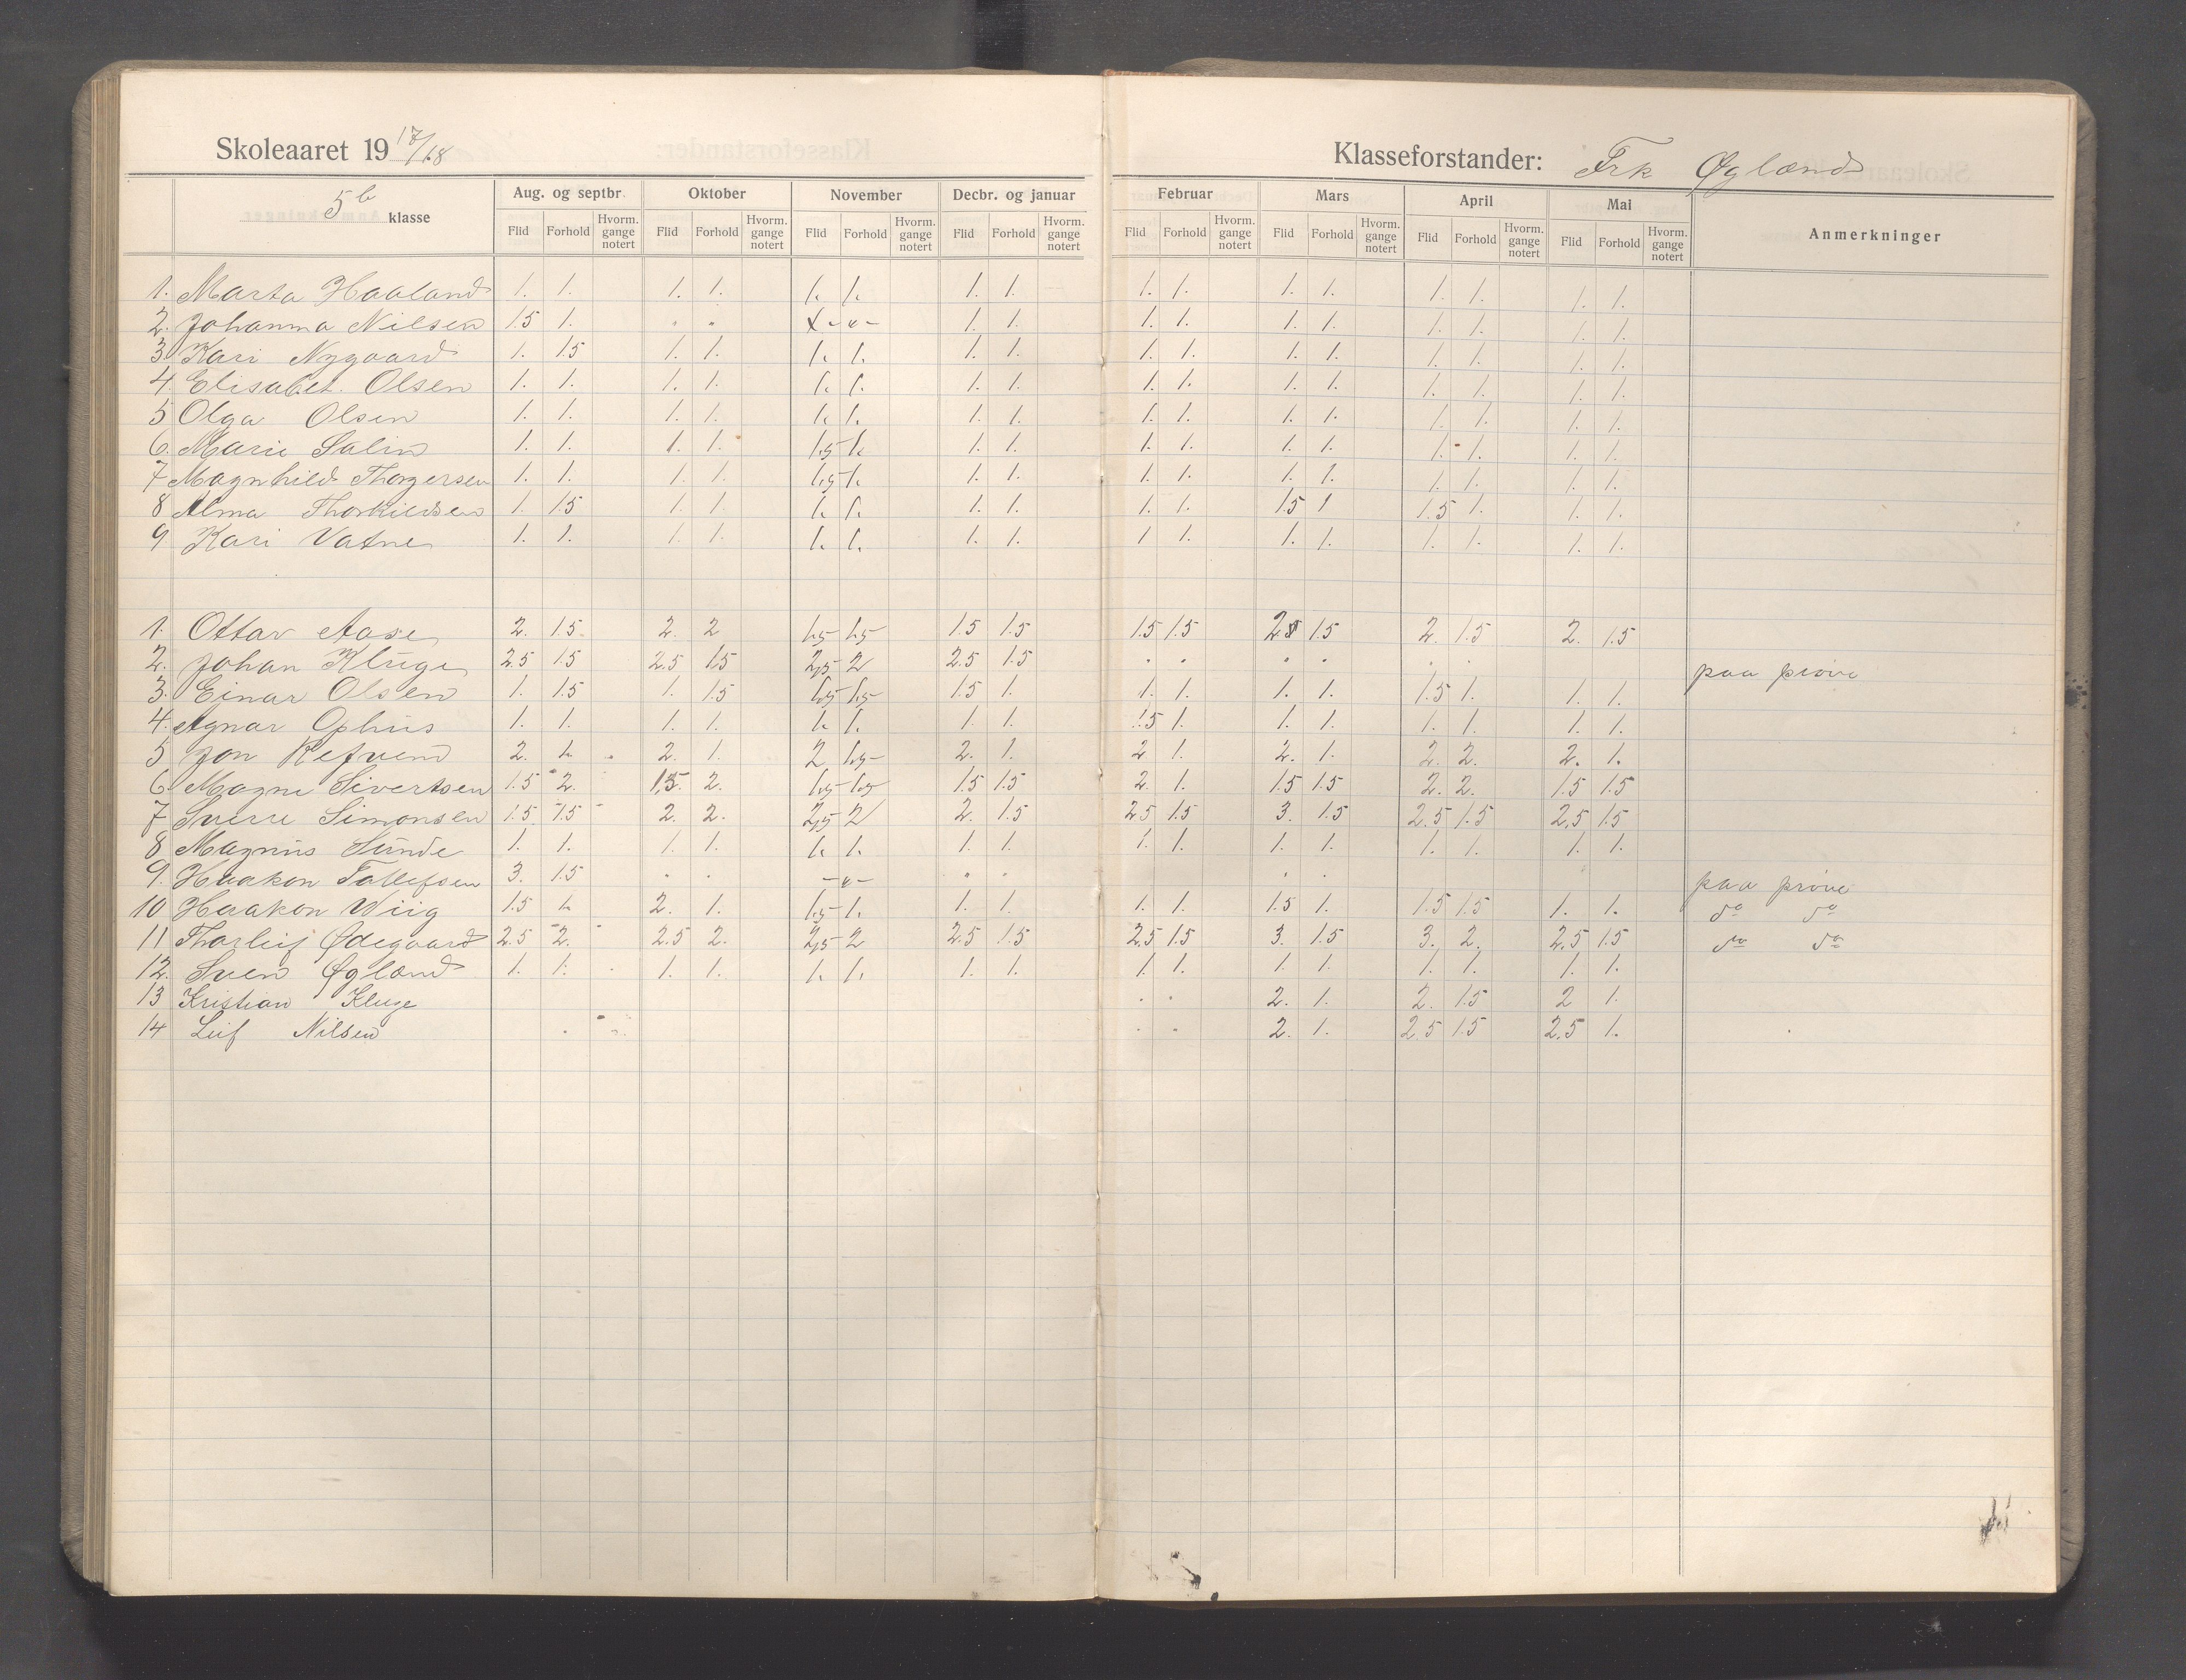 Skoleaaret 19 17/18
Klasseforstander: Frk Øgland
5b klasse
Aug. og septbr. Oktober November Decbr. og januar Februar Mars April Mai Anmerkninger
Flid Forhold Hvorm. gange notert Flid Forhold Hvorm. gange notert Flid Forhold Hvorm. gange notert Flid Forhold Hvorm. gange notert Flid Forhold Hvorm. gange notert Flid Forhold Hvorm. gange notert Flid Forhold Hvorm. gange notert Flid Forhold Hvorm. gange notert
1. Marta Haaland 1. 1. 1. 1. 1. 1. 1. 1. 1. 1. 1. 1. 1. 1. 1. 1.
2. Johanna Nilsen 1.5 1. " " -"- 1. 1. 1. 1. 1. 1. 1. 1. 1. 1.
3. Kari Nygaard 1. 1.5 1. 1. 1. 1. 1. 1. 1. 1. 1. 1. 1. 1. 1. 1.
4. Elisabet Olsen 1. 1. 1. 1. 1. 1. 1. 1. 1. 1. 1. 1. 1. 1. 1. 1.
5 Olga Olsen 1. 1. 1. 1. 1. 1. 1. 1. 1. 1. 1. 1. 1. 1. 1. 1.
6. Marie Salin 1. 1. 1. 1. 1,5 1. 1. 1. 1. 1. 1. 1. 1. 1. 1. 1.
7 Magnhild Thorgersen 1. 1. 1. 1. 1,5 1. 1. 1. 1. 1. 1. 1. 1. 1. 1. 1.
8 Alma Thorkildsen 1. 1.5 1. 1. 1. 1. 1. 1. 1. 1. 1.5 1 1.5 1. 1. 1.
9. Kari Vatne 1. 1. 1. 1. 1. 1. 1. 1. 1 1. 1. 1. 1. 1. 1. 1.
1. Ottar Aase 2. 1.5. 2. 2 1,5 1,5 1.5 1.5 1.5 1.5 2 1.5 2. 1.5 2. 1.5
2. Johan Kluge 2.5 1.5 2.5 1.5 2,5 2 2.5 1.5 " " " " " " paa prøve
3. Einar Olsen 1. 1.5 1. 1.5 1,5 1,5 1.5 1. 1. 1. 1. 1. 1.5 1. 1. 1.
4. Agnar Ophus 1. 1. 1. 1. 1. 1. 1. 1. 1.5 1. 1. 1. 1. 1. 1. 1.
5 Jon Refvem 2. 1. 2. 1. 2 1,5 2. 1. 2 1. 2. 1. 2. 2. 2. 1.
6. Magne Sivertsen 1.5 2. 1.5. 2. 1,5 1,5 1.5 1.5 2. 1. 1.5 1.5 2. 2. 1.5 1.5
7 Sverre Simonsen 1.5. 1.5 2. 2. 2,5 2 2. 1.5 2.5 1.5 3. 1.5 2.5 1.5 2.5 1.5
8 Magnus Sunde 1. 1. 1. 1. 1. 1. 1. 1. 1. 1. 1. 1. 1. 1. 1. 1.
9. Haakon Tollefsen 3. 1.5 " " -"- " " " " paa prøve
10 Haakon Wiig 1.5 1. 2. 1. 1,5 1. 1. 1. 1. 1. 1.5 1. 1.5 1.5 1. 1. do do
11 Thorleif Ødegaard 2.5 2. 2.5 2. 2,5 2 2.5 1.5 2.5 1.5 3. 1.5 3. 2. 2.5 1.5 do do
12. Sven Øgland 1. 1. 1. 1. 1. 1. 1. 1. 1. 1. 1. 1. 1. 1. 1. 1.
13 Kristian Kluge " " 2. 1. 2. 1.5 2 1.
14 Leif Nilsen " " 2. 1. 2.5 1.5 2.5 1.